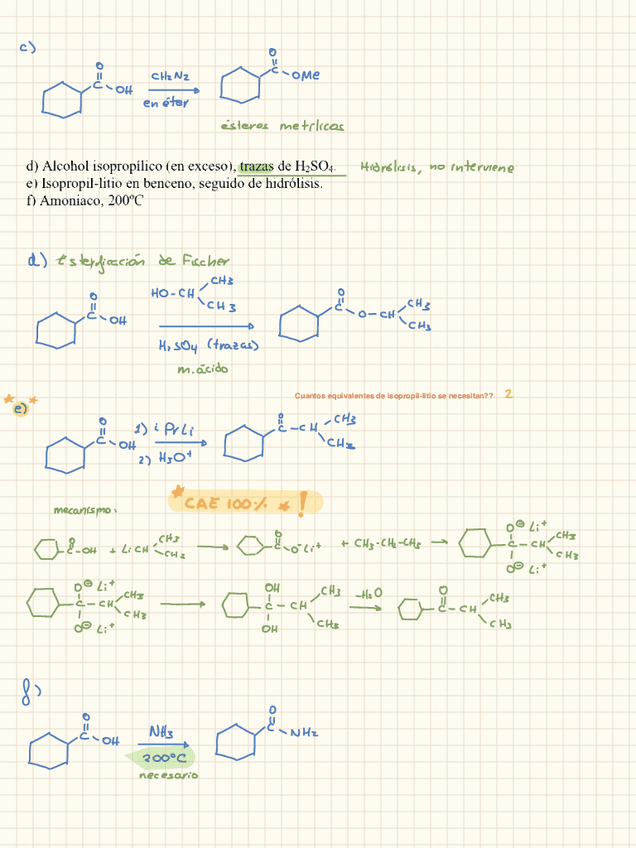 c)
O
C - OH
CH2N2
en éter
O
C - OMe
ésteres metílicos
d) Alcohol isopropílico (en exceso), trazas de H₂SO₄. Hidrólisis, no interviene
e) Isopropil-litio en benceno, seguido de hidrólisis.
f) Amoniaco, 200ºC
d) Esterificación de Fischer
O
C - OH
HO-CH
CH3
CH3
H2SO4 (trazas)
m.ácido
O
C - O - CH
CH3
CH3
Cuantos equivalentes de isopropil-litio se necesitan?? 2
e)
O
C - OH
1) iPrLi
2) H3O+
O
C - CH
CH3
CH3
CAE 100% !
mecanismo:
O
C - OH + LiCH
CH3
CH3
O
C - O⁻Li⁺ + CH3-CH2-CH3
O⊖ Li⁺
C - CH
CH3
CH3
O⊖ Li⁺
O⊖ Li⁺
C - CH
CH3
CH3
O⊖ Li⁺
OH
C - CH
CH3
CH3
OH
-H2O
O
C - CH
CH3
CH3
f)
O
C - OH
NH3
200°C
necesario
O
C - NH2